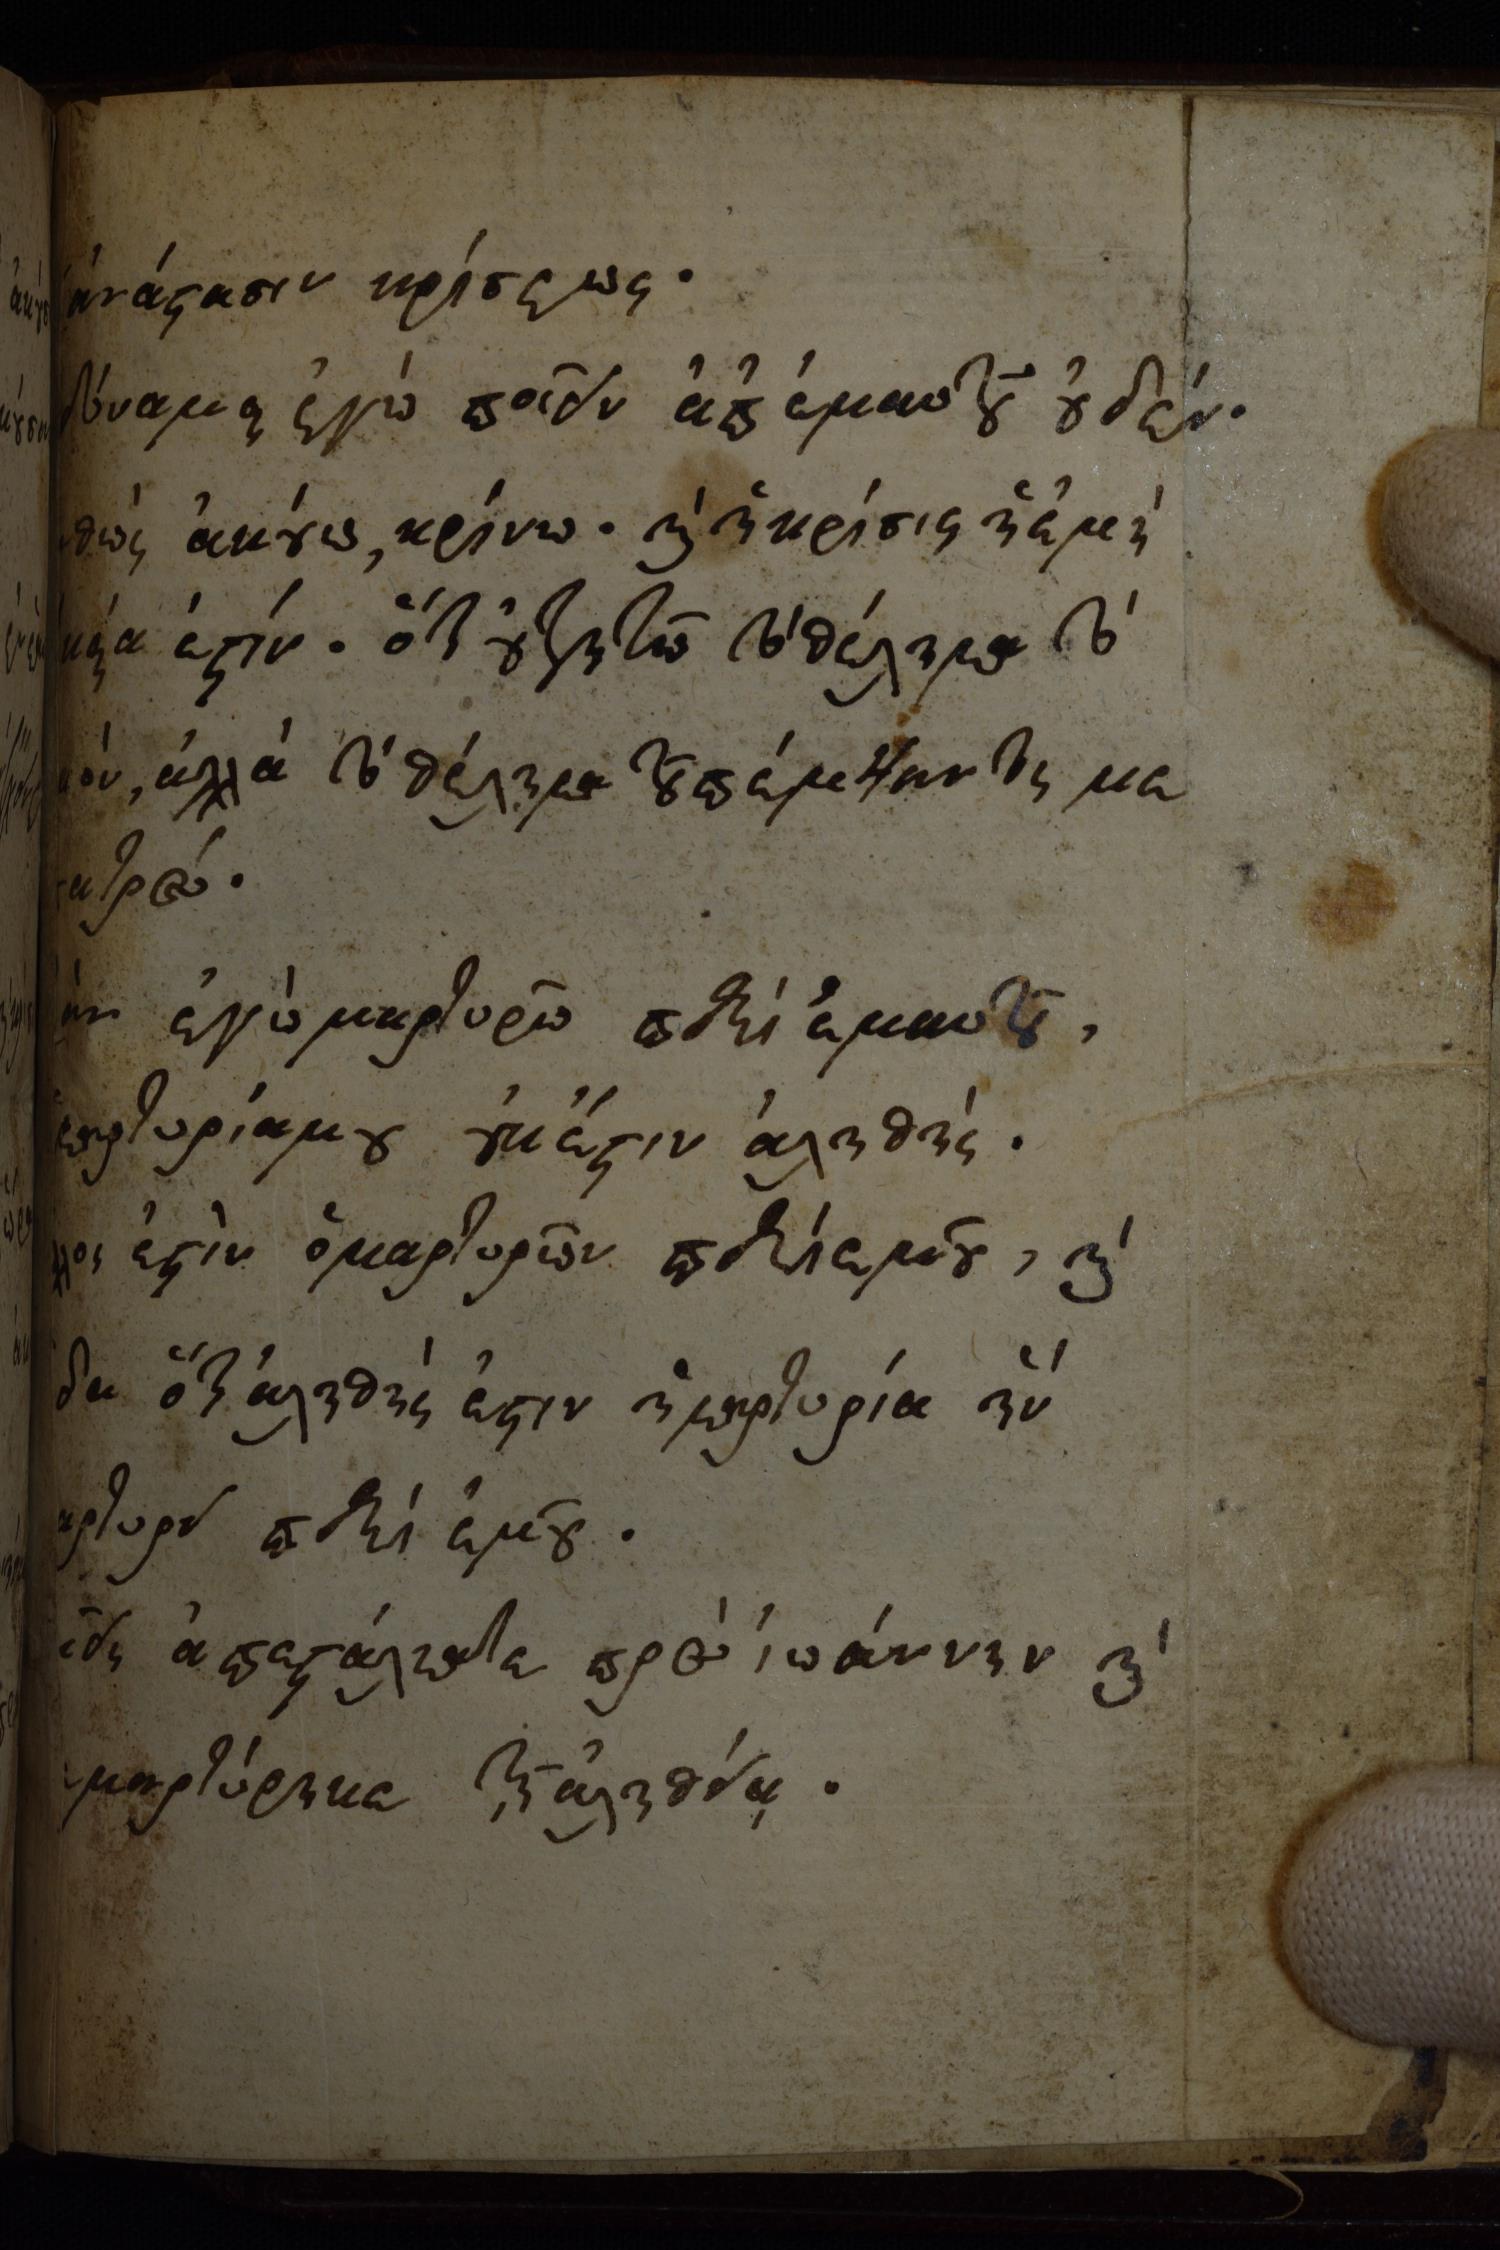 ἀνάστασιν κρίσεως.
δύναμαι ἐγὼ ποιεῖν ἀπ' ἐμαυτοῦ οὐδέν.
θὼς ἀκούω, κρίνω. καὶ ἡ κρίσις ἡ ἐμὴ
καία ἐστίν. ὅτι οὐ ζητῶ τὸ θέλημα τὸ
μὸν, ἀλλὰ τὸ θέλημα τοῦ πέμψαντός με
πατρός.
ὰν ἐγὼ μαρτυρῶ περὶ ἐμαυτοῦ,
μαρτυρία μου οὐκ ἔστιν ἀληθής.
λος ἐστὶν ὁ μαρτυρῶν περὶ ἐμοῦ, καὶ
δα ὅτι ἀληθής ἐστιν ἡ μαρτυρία ἣν
αρτυρεῖ περὶ ἐμοῦ.
εῖς ἀπεστάλκατε πρὸς ἰωάννην καὶ
μεμαρτύρηκε τῇ ἀληθείᾳ.